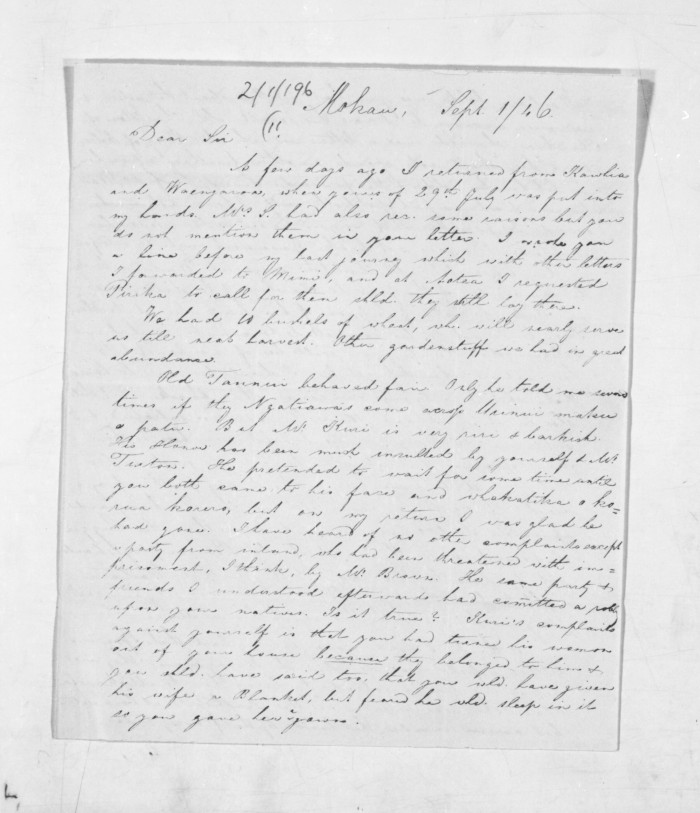 2/1/196
Mokau, Sept 1/46.
(11.
Dear Sir
A few days ago I returned from Kawhia
and Waengaroa, when yours of 29th July was put into
my hands. Mrs S. had also rec. some raisons but you
do not mention them in your letter. I wrote you
a line before my last journey which with other letters
I forwarded to Mimi, and at Aotea I requested
Piripi to call for them shld. they still lay there.
We had 10 bushels of wheat, wh. will nearly serve
us till next harvest. Other gardenstuff we had in good
abundance.
Old behaved fair. Only he told me seven
times if they Ngatiawas come across matou
e patu. But Mr Kuri is very riri & barkish.
His has been much insulted by yourself & Mr
He pretended to wait for some time until
you both came to his face and whakatika o ko=
rua korero, but on my return I was glad he
had gone. I have heard of no other complaints except
a party from inland, who had been threatened with im=
prisonment, I think, by Mr Brown. The same party &
friends I understood afterwards had comitted a
upon your natives. Is it true? Kuri's complaint
against yourself is that you had his women
out of your house because they belonged to him &
you shld. have said too, that you wld. have given
his wife a Blanket, but feard he wld. sleep in it
so you gave her gown.